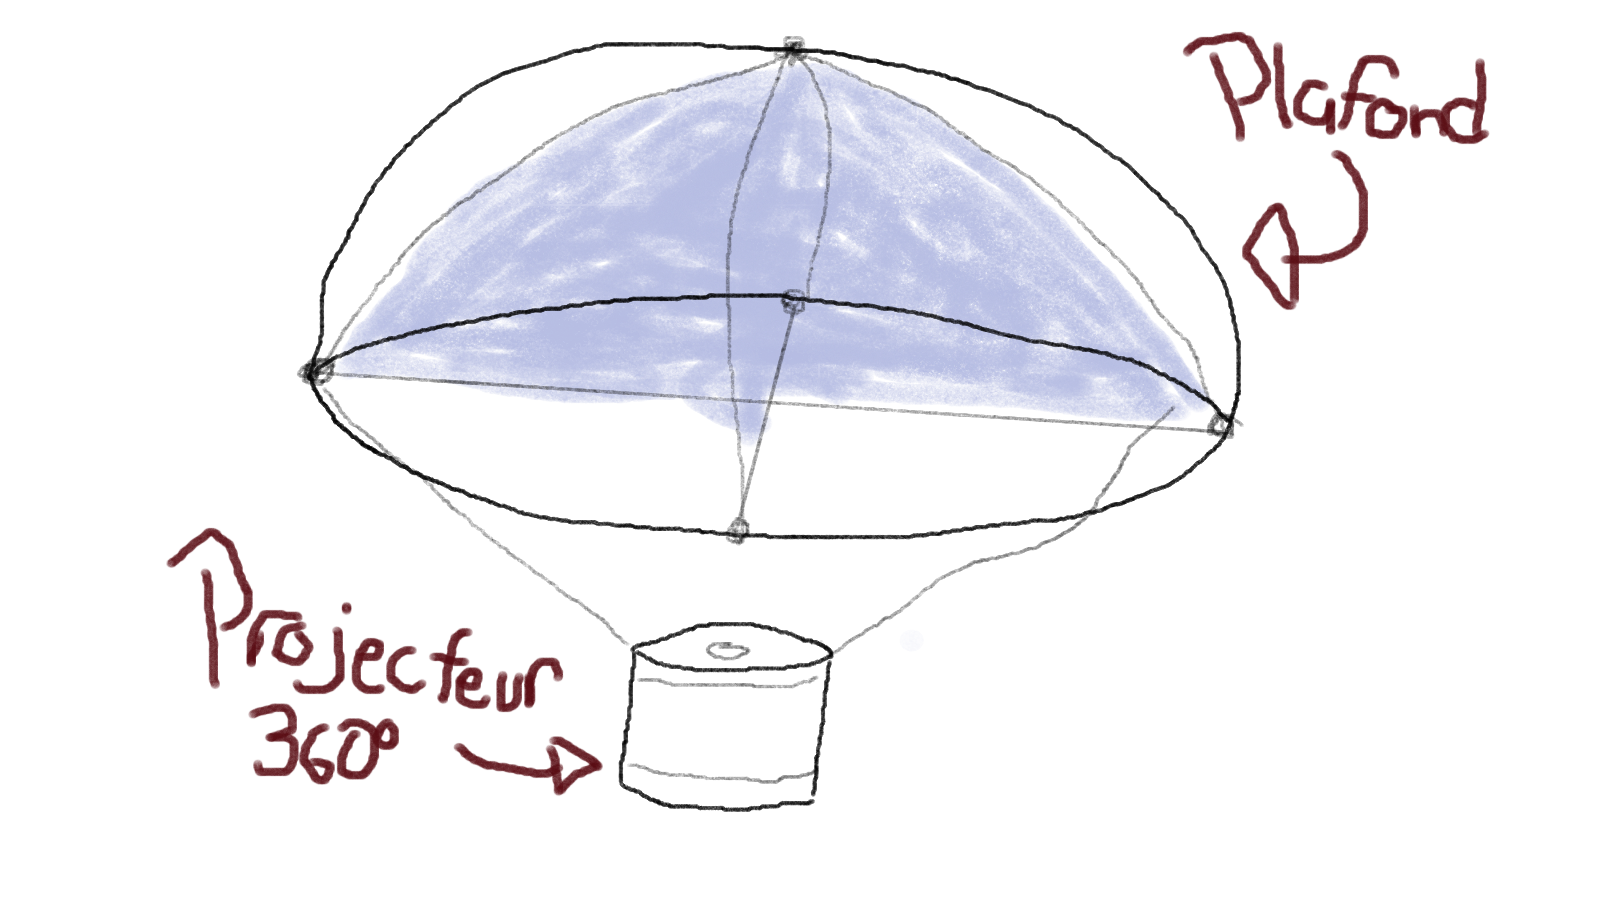 Plafond
Projecteur
360°